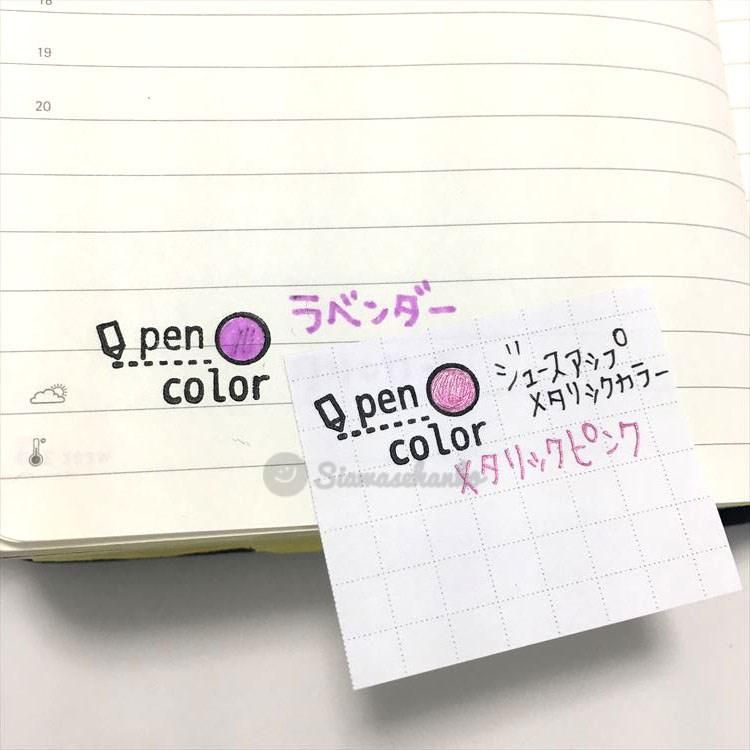 18
19
20
ラベンダー
pen
color
ジュースアップ
メタリックカラー
pen
color
メタリックピンク
Siawasehanko